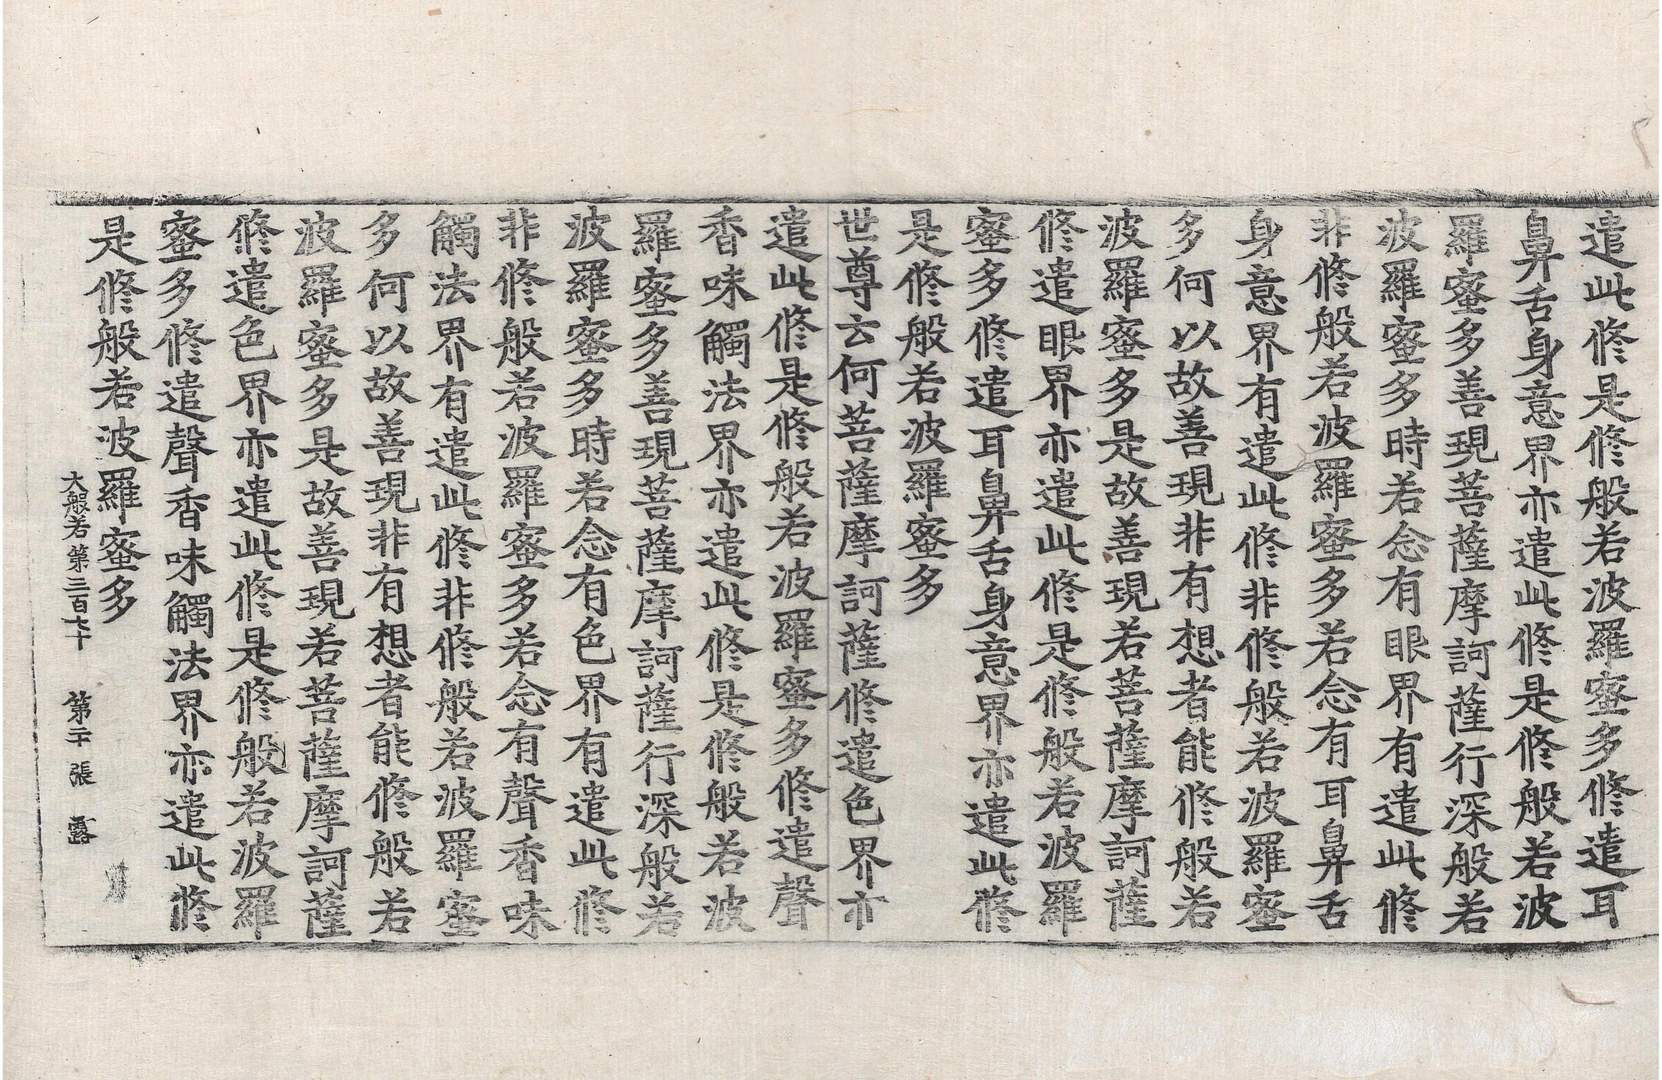 遣此修是修般若波羅蜜多修遣耳
鼻舌身意界亦遣此修是修般若波
羅蜜多善現菩薩摩訶薩行深般若
波羅蜜多時若念有眼界有遣此修
非修般若波羅蜜多若念有耳鼻舌
身意界有遣此修非修般若波羅蜜
多何以故善現非有想者能修般若
波羅蜜多是故善現若菩薩摩訶薩
修遣眼界亦遣此修是修般若波羅
蜜多修遣耳鼻舌身意界亦遣此修
是修般若波羅蜜多
世尊云何菩薩摩訶薩修遣色界亦
遣此修是修般若波羅蜜多修遣聲
香味觸法界亦遣此修是修般若波
羅蜜多善現菩薩摩訶薩行深般若
波羅蜜多時若念有色界有遣此修
非修般若波羅蜜多若念有聲香味
觸法界有遣此修非修般若波羅蜜
多何以故善現非有想者能修般若
波羅蜜多是故善現若菩薩摩訶薩
修遣色界亦遣此修是修般若波羅
蜜多修遣聲香味觸法界亦遣此修
是修般若波羅蜜多
大般若第三百七十 第二十張 露